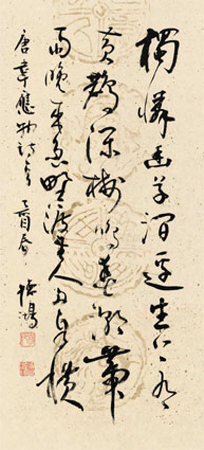 獨憐幽草澗邊生上有
黃鸝深樹鳴春潮帶
雨晚來急野渡無人舟自橫
唐韋應物詩 春
鴻